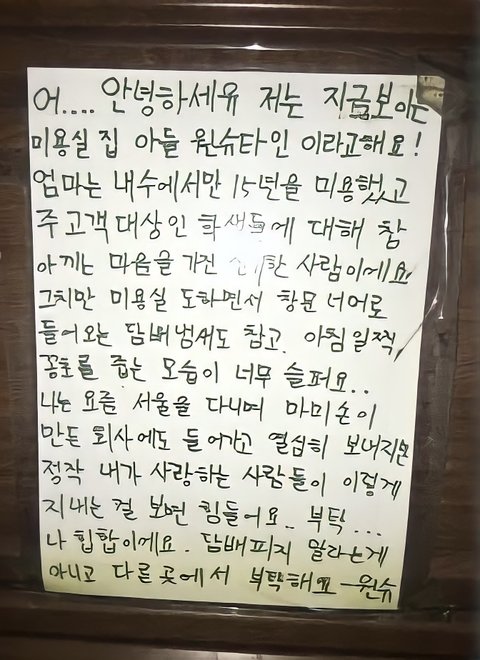 어.... 안녕하세유 저는 지금보이는
미용실 집 아들 원슈타인 이라고해요!
엄마는 내수에서만 15년을 미용했고
주고객대상인 학생들에 대해 참
아끼는 마음을 가진 사람이에요
그치만 미용실 도하면서 창문 너어로
들어오는 담배냄새도 참고. 아침일찍
꽁초를 줍는 모습이 너무 슬퍼요..
나는 요즘 서울을 다니며 마미손이
만든 회사에도 들어가고 열심히 보내지만
정작 내가 사랑하는 사람들이 이렇게
지내는 걸 보면 힘들어요.. 부탁...
나 힙합이에요. 담배피지 말라는게
아니고 다른 곳에서 부탁해요 -원슈